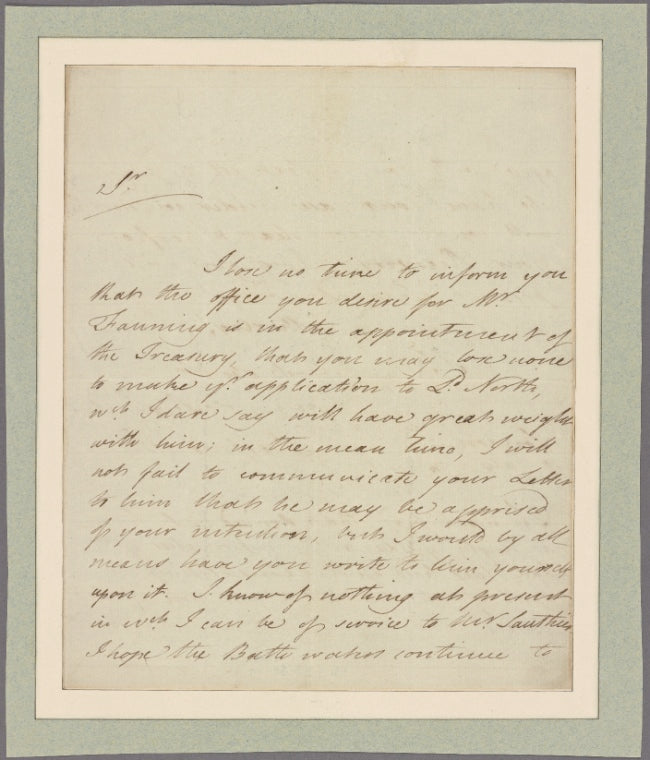 Sr
I lose no time to inform you
that the office you desire for Mr.
Fanning is in the appointment of
the Treasury, that you may lose none
to make yr. application to Ld. North,
wch I dare say will have great weight
with him; in the mean time, I will
not fail to communicate your Letter
to him that he may be apprised
of your intention, but I would by all
means have you write to him yourself
upon it. I know of nothing at present
in wch I can be of service to Mr. Sauthier
I hope the Bath waters continue to